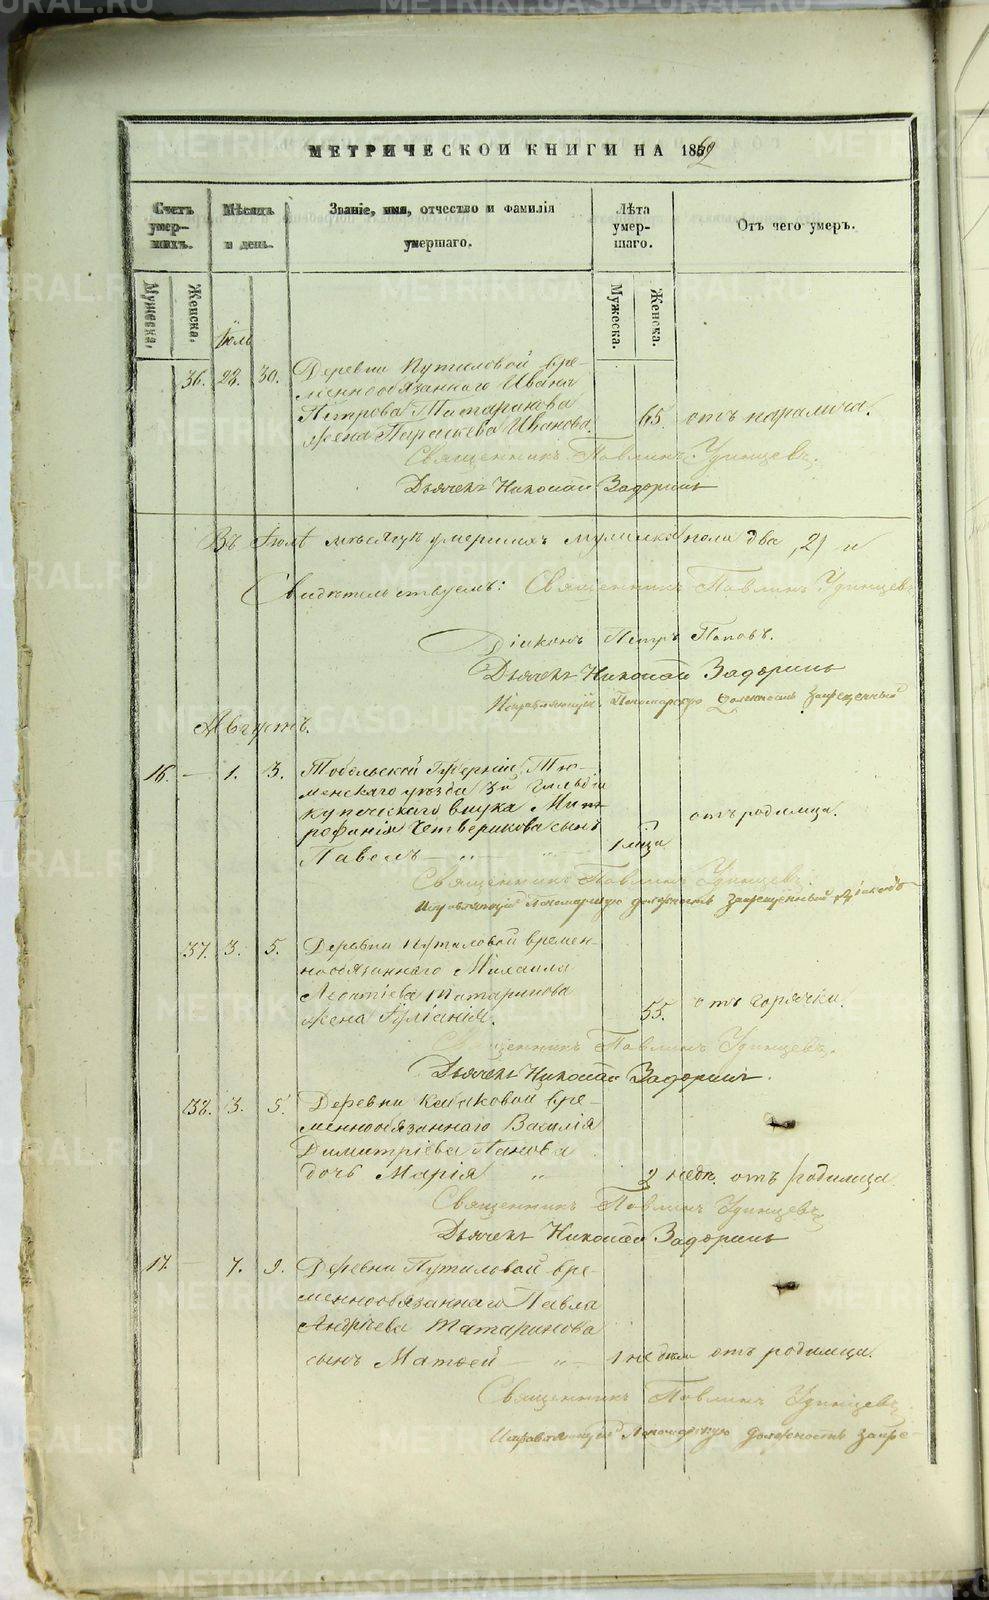 МЕТРИЧЕСКОЙ КНИГИ НА 1862
Счетъ умершихъ.
Мѣсяцъ и день.
Званіе, имя, отчество и фамилія умершаго.
Лѣта умершаго.
Отъ чего умеръ.
Мужеска.
Женска.
Мужеска.
Женска.
Іюль
36. 28. 30. Деревни Путиловой вре-
меннообязаннаго Ивана
Петрова Татаринова
жена Параскева Иванова. 65. отъ паралича.
Священникъ Павлинъ Удинцевъ.
Дьячекъ Николай Задоринъ
Въ Іюлѣ мѣсяцѣ умершихъ мужеска пола два, 2) и
Свидѣтельствуемъ: Священникъ Павлинъ Удинцевъ
Діаконъ Петръ Поповъ.
Дьячекъ Николай Задоринъ
Исправляющій Пономарскую должность запрещенный
Августъ.
16. — 1. 3. Тобольской Губерніи, Тю-
менскаго уѣзда 3й гильдіи
купеческаго внука Мит-
рофанія Четверикова сынъ
Павелъ — „ „ 1 мца отъ родимца.
Священникъ Павлинъ Удинцевъ.
Исправляющій Пономарскую должность запрещенный Діаконъ
37. 3. 5. Деревни Путиловой времен-
нообязаннаго Михаила
Леонтіева Татаринова
жена Іуліанія. 55. отъ горячки.
Священникъ Павлинъ Удинцевъ.
Дьячекъ Николай Задоринъ.
38. 3. 5. Деревни вре-
меннообязаннаго Василія
Димитріева Панова
дочь Марія „ 2 недѣ. отъ родимца
Священникъ Павлинъ Удинцевъ
Дьячекъ Николай Задоринъ
17. — 7. 9. Деревни Путиловой вре-
меннообязаннаго Павла
Андреева Татаринова
сынъ Матѳей — „ — 1 недѣли отъ родимца.
Священникъ Павлинъ Удинцевъ
Исправляющій Пономарскую должность запре-
METRIKI.GASO-URAL.RU